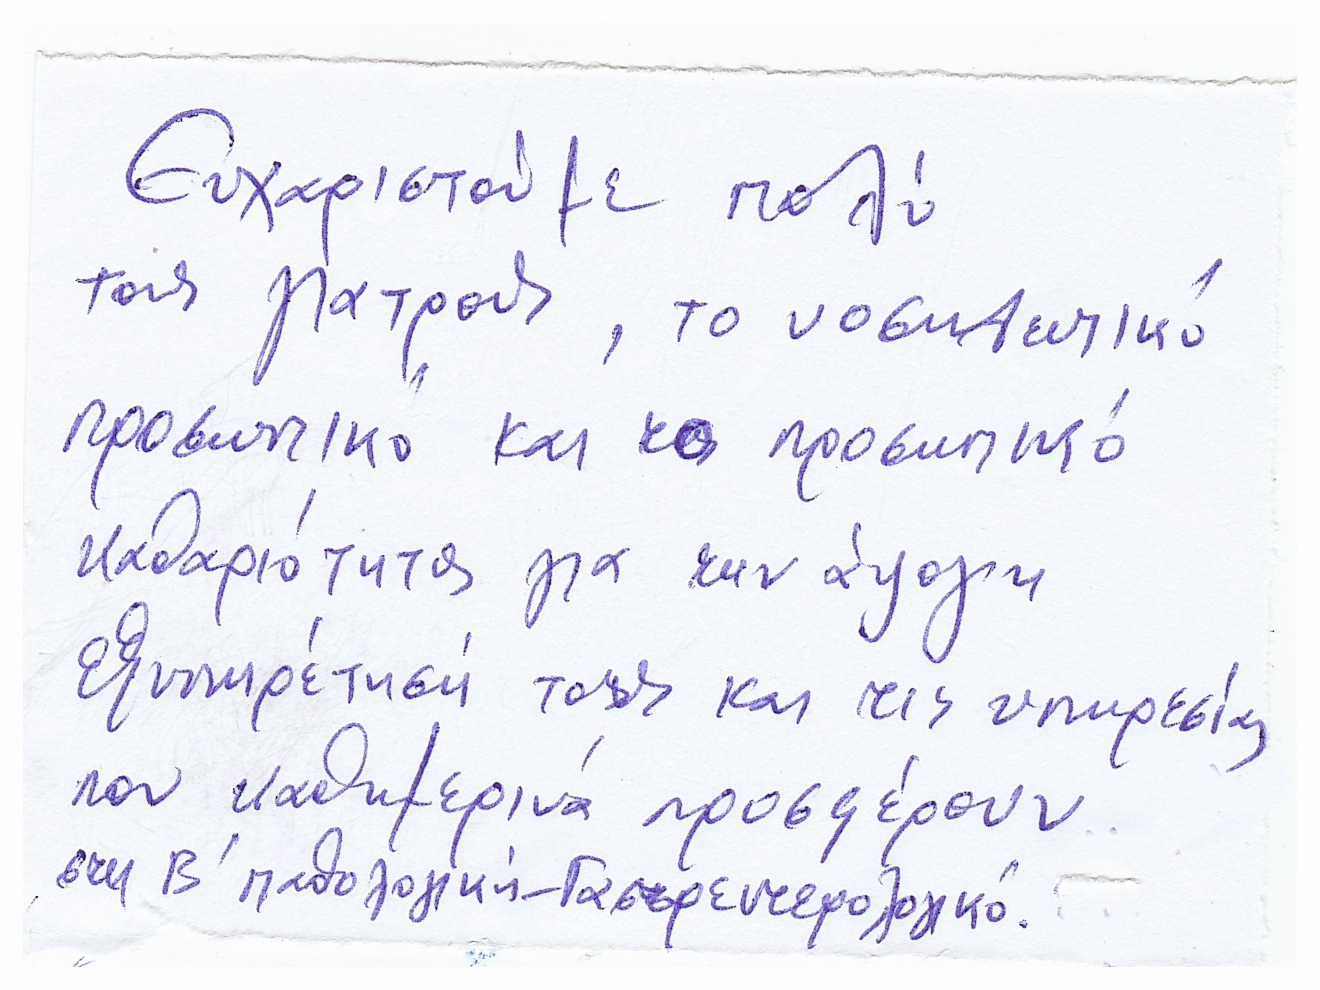 Ευχαριστούμε πολύ
τους γιατρούς, το νοσηλευτικό
προσωπικό και το προσωπικό
καθαριότητας για την άψογη
εξυπηρέτησή τους και τις υπηρεσίες
που καθημερινά προσφέρουν
στη Β' παθολογική-Γαστρεντερολογικό.